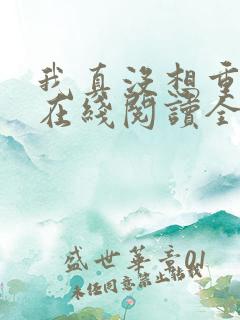 我真没想重
在綫閱讀全
盛世華章01
未经同意禁止转载